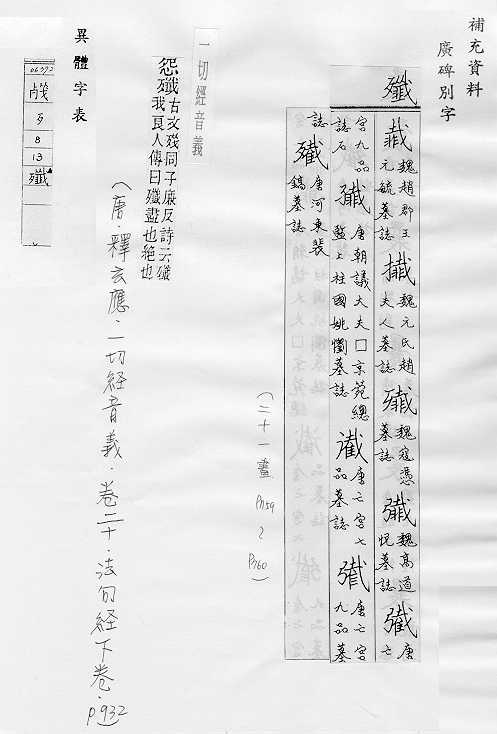 補充資料
廣碑別字
殲
魏趙郡王元毓墓誌
魏元氏趙夫人墓誌
魏寇憑墓誌
魏高道悅墓誌
唐亡宮七
宮九品誌石
唐朝議大夫□京苑總監上柱國姚懰墓誌
唐亡宮七品墓誌
唐亡宮九品墓
誌
唐河東裴鎬墓誌
(二十一畫 P1159~P1160)
一切經音義
怨殲古文㱚同子廉反詩云殲
殲我良人傳曰殲盡也絕也
(唐·釋玄應·一切經音義·卷二十·法句經下卷·P.932
異體字表
06392
歹
8
13
殲